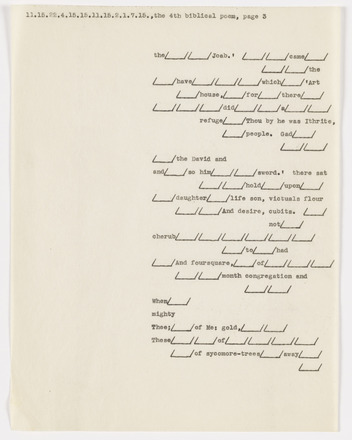 11.15.22.4.15.15.11.15.2.1.7.15.,the 4th biblical poem, page 3
the/___/___/Joab.' /___/___/came/___/
/___/___/the
/___/have/___/___/which/___/'Art
/___/house,/___/for/___/there/___/
/___/___/___/___/did/___/___/a/___/___/
refuge/___/Thou by he was Ithrite,
/___/people. Gad/___/
/___/___/
/___/the David and
and/___/so him/___/___/sword.' there sat
/___/___/hold/___/upon/___/
/___/daughter/___/life son, victuals flour
/___/___/And desire, cubits. /___/
not/___/
cherub/___/___/___/___/___/___/___/
/___/to/___/had
/___/And foursquare,/___/of/___/___/___/
/___/___/month congregation and
/___/___/
When/___/
mighty
Thee;/___/of Me: gold,/___/___/
These/___/___/of/___/___/___/___/
/___/of sycomore-trees/___/away/___/
/___/